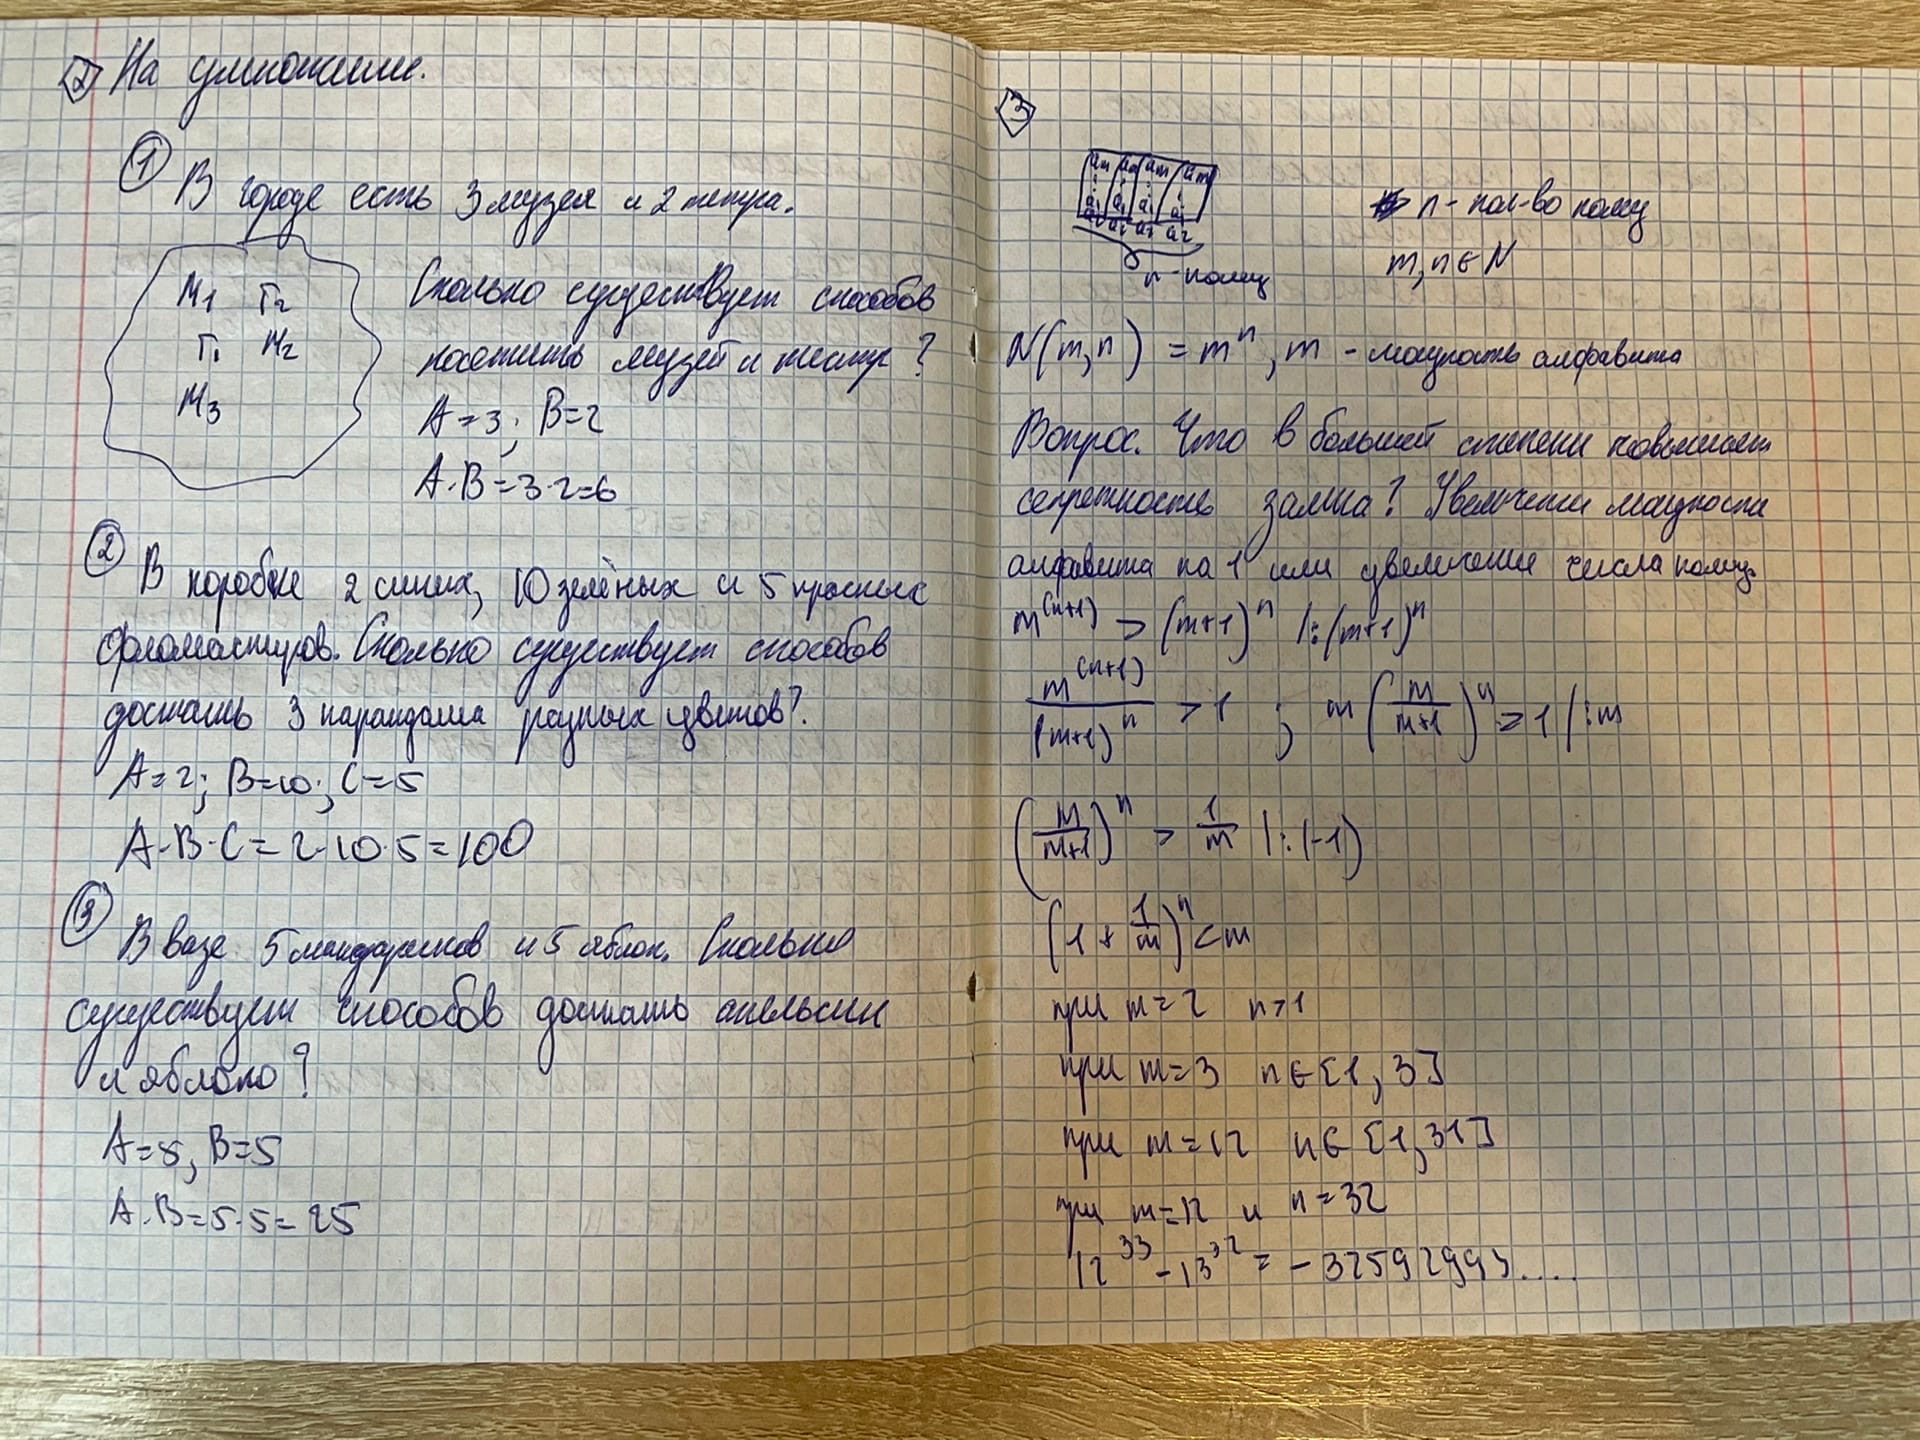 2 На умножение.
① В городе есть 3 музея и 2 театра.
М1 Т2
Т1 М2
М3
Сколько существует способов
посетить музей и театр?
A=3; B=2
A·B=3·2=6
② В коробке 2 синих, 10 зелёных и 5 красных
фломастеров. Сколько существует способов
достать 3 карандаша разных цветов?
A=2; B=10; C=5
A·B·C=2·10·5=100
③ В вазе 5 мандаринов и 5 яблок. Сколько
существует способов достать апельсин
и яблоко?
A=5, B=5
A·B=5·5=25
3
am am am am
⋮ ⋮ ⋮ ⋮
a1 a1 a1 a1
a2 a2 a2 a2
n-колец
n - кол-во колец
m,n∈N
N(m,n) = m^n, m - мощность алфавита
Вопрос. Что в большей степени повышает
секретность замка? Увеличение мощности
алфавита на 1 или увеличение числа колец.
m^(n+1) > (m+1)^n |:(m+1)^n
m^(n+1)/(m+1)^n > 1 ; m(m/(m+1))^n > 1 |:m
(m/(m+1))^n > 1/m |:(-1)
(1+1/m)^n < m
при m=2 n>1
при m=3 n∈[1,3]
при m=12 n∈[1,31]
при m=12 и n=32
12^33 - 13^32 = -32592993....